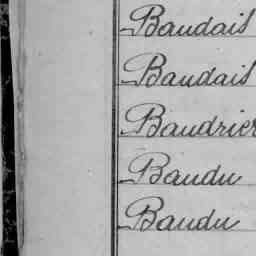 Baudais
Baudais
Baudrier
Baudu
Baudu